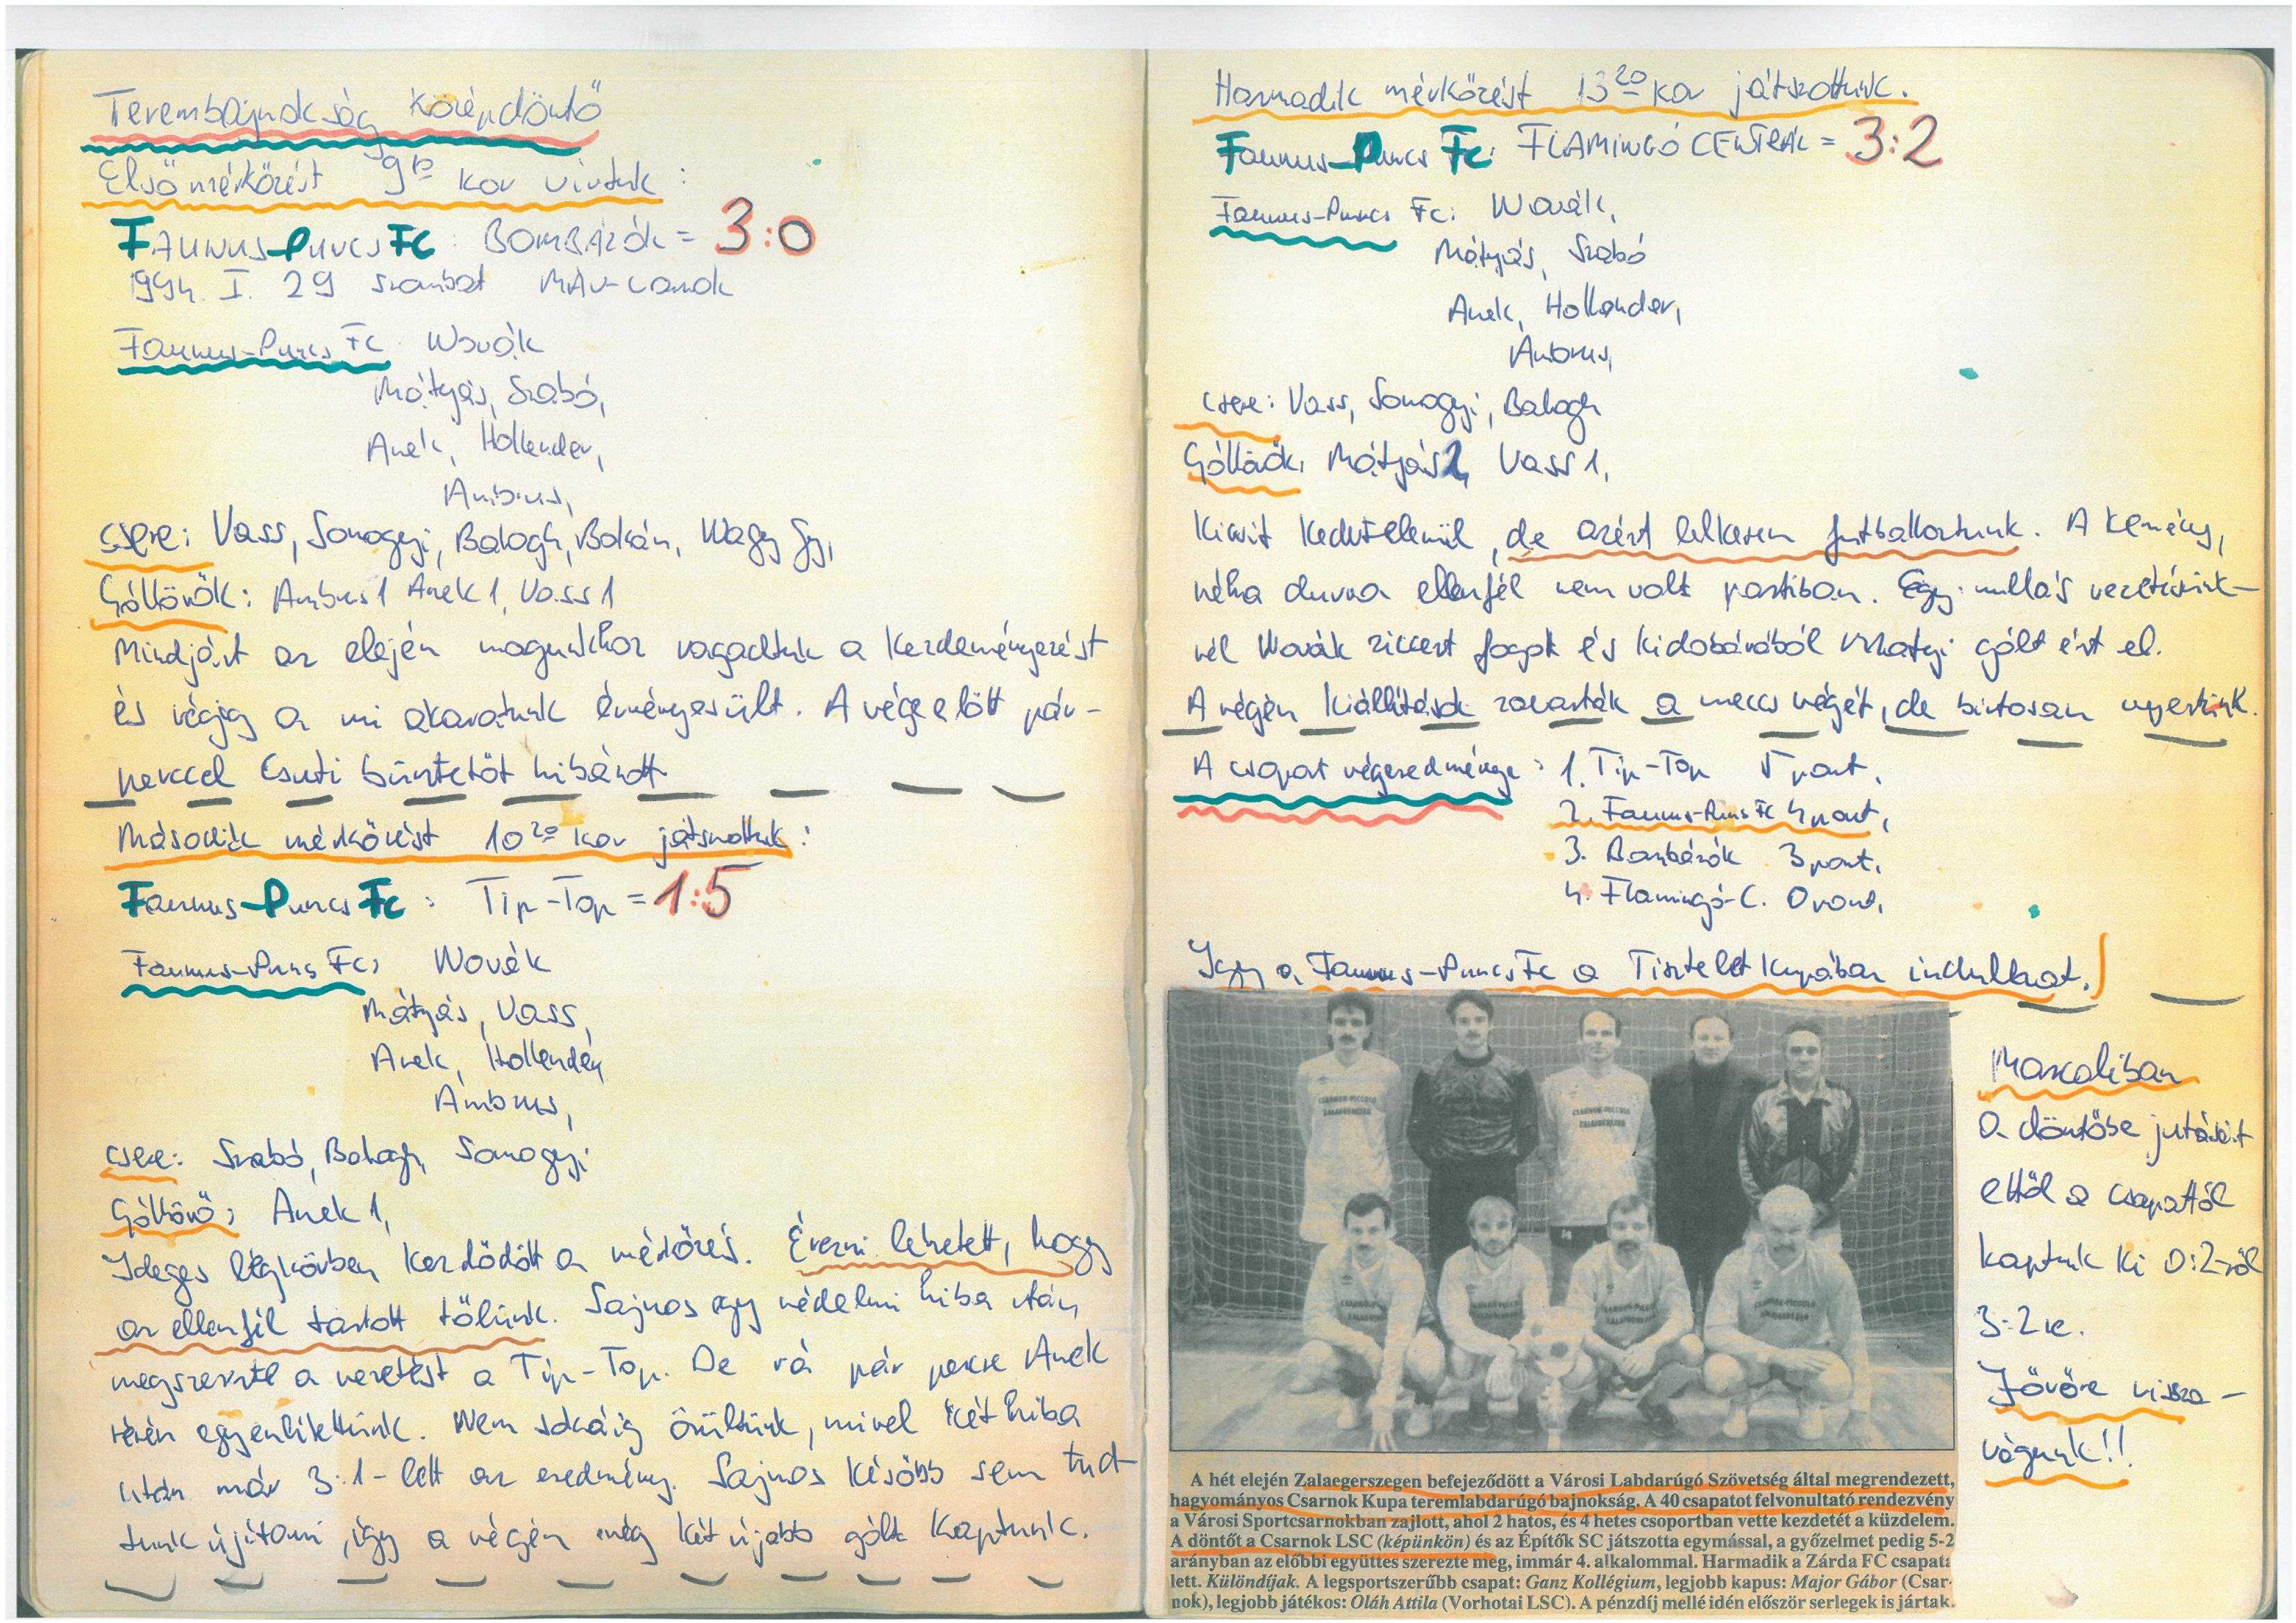 Terembajnokság középdöntő
Első mérkőzést 9 kor vívtuk:
FAUNUS-PUNCS FC: BOMBÁZÓK = 3:0
1994. I. 29 szombat MÁV-csarnok
Faunus-Puncs Fc: Novák
Mátyás, Szabó,
Anek, Hollender,
Ambrus,
csere: Vass, Somogyi, Balogh, Bokán, Nagy Gy,
Góllövők: Ambrus 1 Anek 1, Vass 1
Mindjárt az elején magunkhoz ragadtuk a kezdeményezést
és végig a mi akaratunk érvényesült. A vége előtt pár-
perccel Csuti büntetőt hibázott
Második mérkőzést 10 20 kor játszottuk:
Faunus-Puncs Fc: Tip-Top = 1:5
Faunus-Puncs Fc: Novák
Mátyás, Vass,
Anek, Hollender,
Ambrus,
csere: Szabó, Balogh, Somogyi
Góllövő: Anek 1,
Ideges légkörben kezdődött a mérkőzés. Érezni lehetett, hogy
az ellenfél tartott tőlünk. Sajnos egy védelmi hiba után
megszerezte a vezetést a Tip-Top. De rá pár percre Anek
révén egyenlítettünk. Nem sokáig örültünk, mivel két hiba
után már 3:1-lett az eredmény. Sajnos később sem tud-
tunk újítani, így a végén még két újabb gólt kaptunk.
Harmadik mérkőzést 13 20 kor játszottunk.
Faunus-Puncs Fc: FLAMINGÓ CENTRÁL = 3:2
Faunus-Puncs Fc: Novák,
Mátyás, Szabó
Anek, Hollender,
Ambrus,
csere: Vass, Somogyi, Balogh
Góllövők: Mátyás 2, Vass 1,
Kicsit kedvetlenül, de azért lelkesen futballoztunk. A kemény,
néha durva ellenfél nem volt partiban. Egy nullás vezetésünk-
nél Novák ziccert fogott és kidobásából Mátyi gólt ért el.
A végén kiállítások zavarták a meccs végét, de biztosan nyertünk.
A csoport végeredménye: 1. Tip-Top 5 pont,
2. Faunus-Puncs Fc 4 pont,
3. Bombázók 3 pont,
4. Flamingó-C. 0 pont,
Így a Faunus-Puncs Fc a Tisztelet Kupában indulhat.
Marcaliban
a döntőbe jutásért
ettől a csapattól
kaptunk ki 0:2-ről
3:2re.
Jövőre vissza-
vágunk!!
CSARNOK-PICCOLO
ZALAEGERSZEG
A hét elején Zalaegerszegen befejeződött a Városi Labdarúgó Szövetség által megrendezett,
hagyományos Csarnok Kupa teremlabdarúgó bajnokság. A 40 csapatot felvonultató rendezvény
a Városi Sportcsarnokban zajlott, ahol 2 hatos, és 4 hetes csoportban vette kezdetét a küzdelem.
A döntőt a Csarnok LSC (képünkön) és az Építők SC játszotta egymással, a győzelmet pedig 5-2
arányban az előbbi együttes szerezte meg, immár 4. alkalommal. Harmadik a Zárda FC csapata
lett. Különdíjak. A legsportszerűbb csapat: Ganz Kollégium, legjobb kapus: Major Gábor (Csar-
nok), legjobb játékos: Oláh Attila (Vorhotai LSC). A pénzdíj mellé idén először serlegek is jártak.